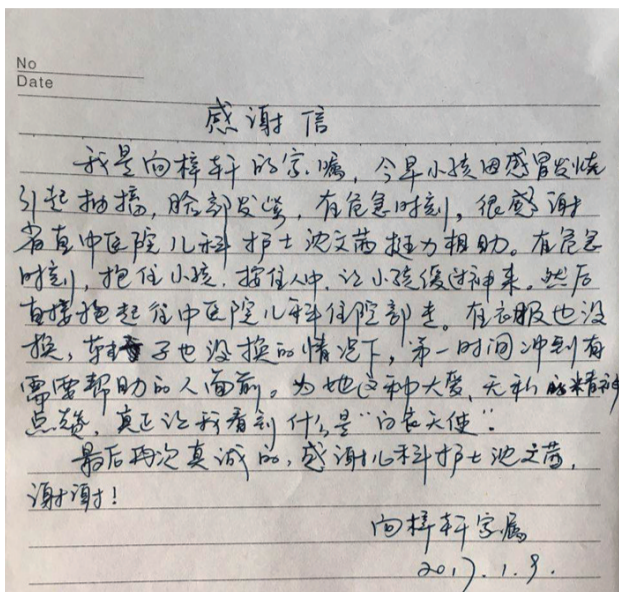 No
Date
感谢信
我是向梓轩的家属,今早小孩因感冒发烧
引起抽搐,脸部发紫,有危急时刻,很感谢
省直中医院儿科护士沈文茜挺力相助。在危急
时刻,抱住小孩,按住人中,让小孩缓过神来。然后
直接抱起往中医院儿科住院部走。在衣服也没
换,鞋子也没换的情况下,第一时间冲到有
需要帮助的人面前。为她这种大爱、无私的精神
点赞,真正让我看到什么是“白衣天使”。
最后再次真诚的,感谢儿科护士沈文茜,
谢谢!
向梓轩家属
2017.1.9.